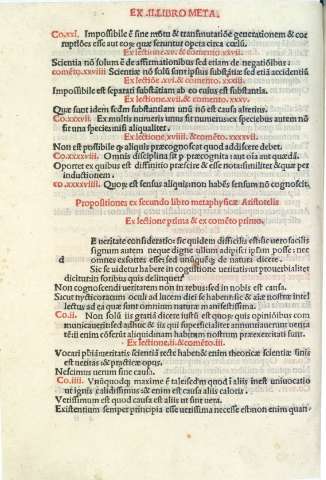 EX .II.LIBRO META.
Co.xxi. Impossibile ē sine motu & transmutatiōe generationem & cor
ruptiōes esse aut eorū quæ sequuntur opera circa cœlū.
Ex lectione .xv. & comento .xxvii.
Scientia nō solum ē de affirmationibus sed etiam de negatiōibus.
comēto.xxviii Scientiæ nō solū san̄t ipsius substātiæ sed etiā accidentis.
Ex lectiōe xvi. & comento. xxxiii.
Impossibile est separari substātiam ab eo cuius est substantia.
Ex lectione.xvii. & comento xxxv.
Quæ sunt idem sedm̄ substantiam unū nō est causa alterius.
Co.xxxvii. Ex multis numeris unus fit numerus ex speciebus autem nō
fit una species nisi aliqualiter.
Ex lectione.xviii. & cometo. xxxxvii.
Non est possibile ꝙ aliquis præcognoscat quod addiscere debet.
Co. xxxxviii. Omnis disciplina fit ꝑ præcognita aut oīa aut quædā.
Oportet ex quibus est diffinitio præscire & esse nota: similiter & quæ per
inductionem.
co. xxxxviiii. Quorū est sensus aliquis non habēs sensum nō cognoscit.
Propositiones ex secundo libro metaphysicæ Aristotelis
Ex lectione prima & ex comēto primo.
E ueritate consideratio sic quidem difficilis est sic uero facilis
signum autem neque digne ullum adipisci ipsam posse: nec
d omnes exsortes esse: sed unūquēqȝ de natura dicere.
Sic se uidetur habere in cognitione ueritatis ut prouerbialiter
dicitur in foribus quis delinquet?
Non cognoscendi ueritatem non in rebus: sed in nobis est causa.
Sicut nycticoracum oculi ad lucem diei se habent: sic & noster intel
lectus ad ea quæ sunt omnium naturæ manifestissima.
Co.ii. Non solū iis gratiā dicere iustū est quorū quis opinionibus com
municauerit: sed adhuc & iis qui superficialiter annunciauerunt uerita
tē: ii enim cōferūt aliquid: nam habitum nostrum præexercitati sunt.
Ex lectiōe.ii. & comēto.iii.
Vocari phīam ueritatis scientiā recte habet: & enim theoricæ scientiæ finis
est ueritas & practicæ opus.
Nescimus uerum sine causa.
Co.iiii. Vnūquodqȝ maxime ē tale: secundum quod ī aliis inest uniuocatio
ut ignis calidissimus: & enim est causa aliis caloris.
Verissimum est quod causa est aliis ut sint uera.
Existentium semper principia esse uerissima necesse est: non enim quan-